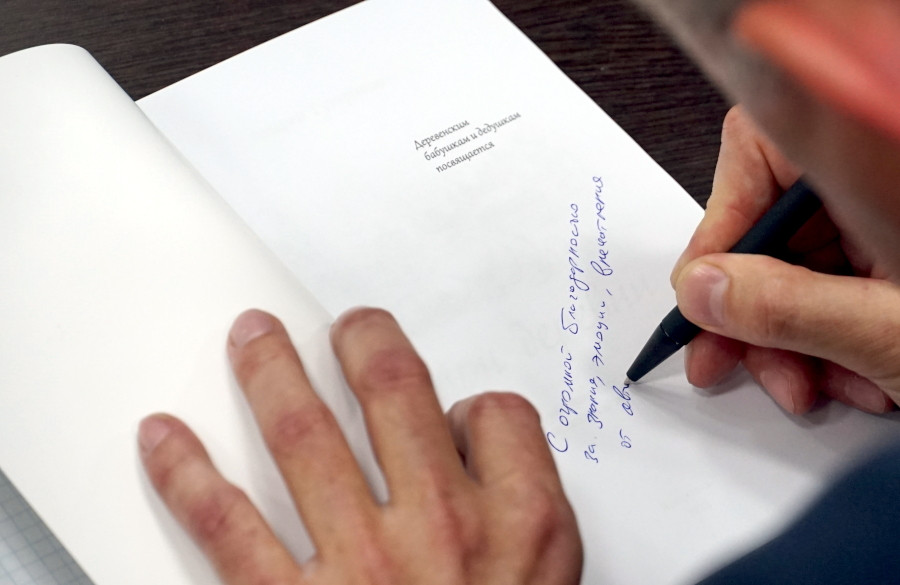 Деревенским
бабушкам и дедушкам
посвящается
С огромной благодарностью
за знания, эмоции, впечатления
от ав